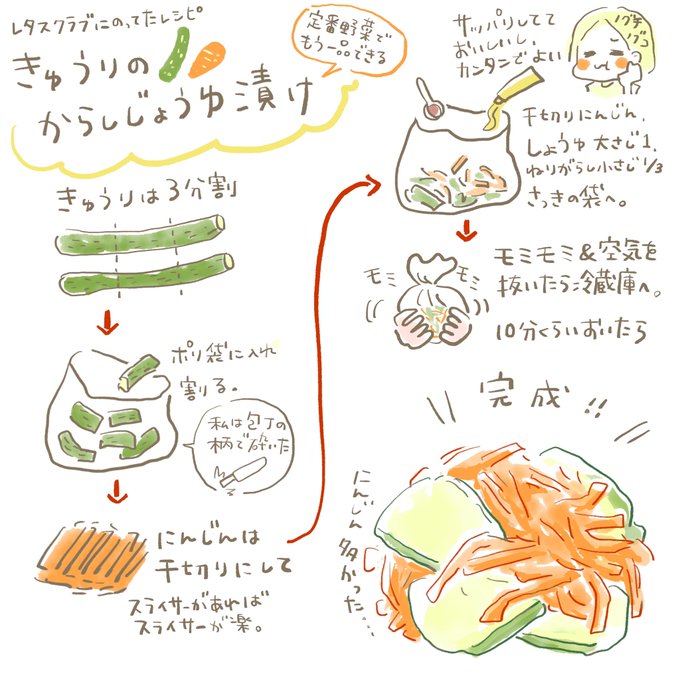 レタスクラブにのってたレシピ
きゅうりの
からしじょうゆ漬け
定番野菜で
もう一品できる
きゅうりは3分割
ポリ袋に入れ
割る。
私は包丁の
柄で砕いた
にんじんは
千切りにして
スライサーがあれば
スライサーが楽。
サッパリしてて
おいしいし、
カンタンでよい
ノグチ
ノグコ
千切りにんじん、
しょうゆ 大さじ1、
ねりがらし小さじ1/3
さっきの袋へ。
モミ
モミ
モミモミ&空気を
抜いたら冷蔵庫へ。
10分くらいおいたら
完成!!
にんじん多かった…